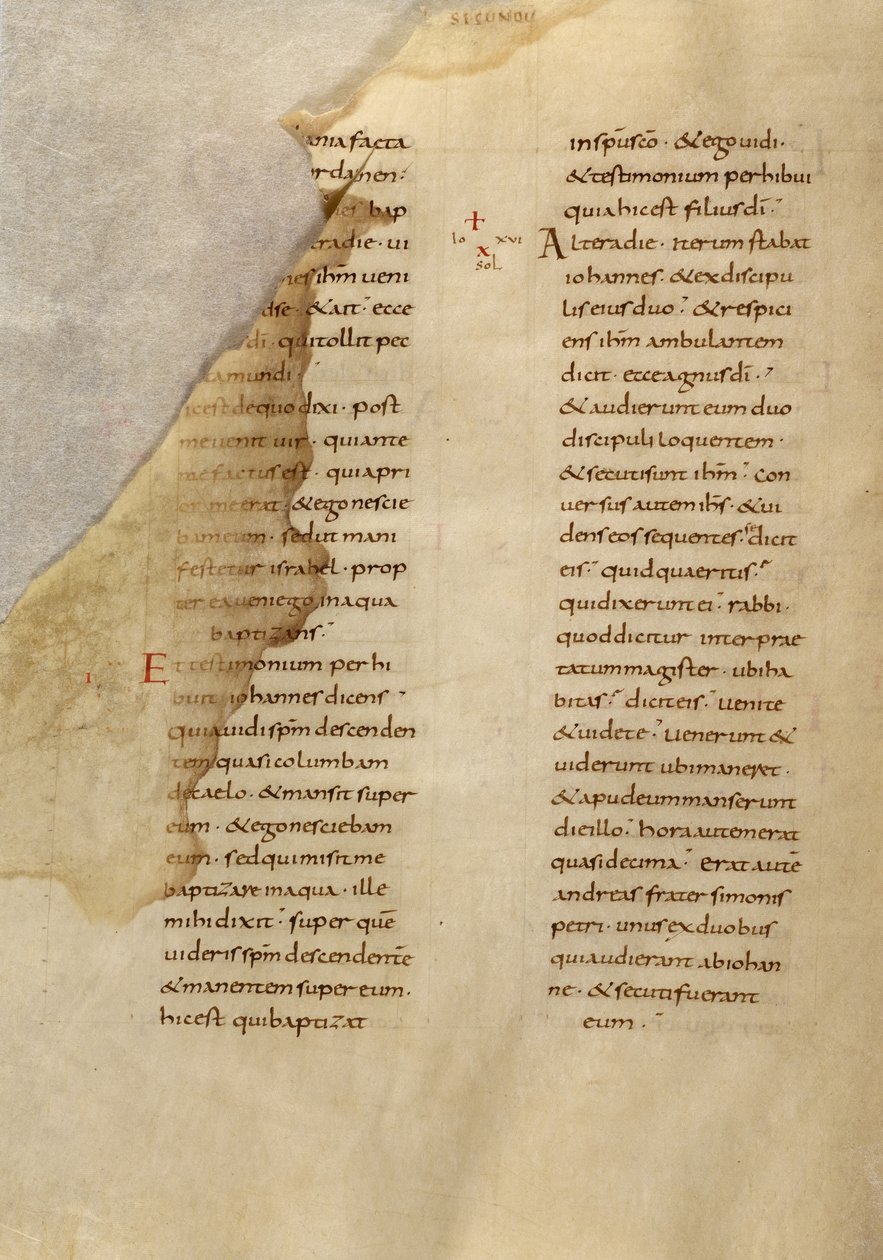 SECUNDU
ania facta
rdanen·
bap
radie· ui
nes ihm̄ ueni
dse· & ait· ecce
dī· qui tollit pec
ta mundi·
ic est de quo dixi· post
me uenit uir· qui ante
me factus est· quia pri
or me erat· & ego nescie
bam eum· sed ut mani
festetur israhel· prop
ter ea ueni ego in aqua
baptizans·
Et testimonium perhi
buit iohannes dicens
quia uidi spm̄ descenden
tem quasi columbam
de caelo· & mansit super
eum· & ego nesciebam
eum· sed qui misit me
baptizare in aqua· ille
mihi dixit· super quē
uideris spm̄ descendentē
& manentem super eum·
hic est qui baptizat
I
+
Io xvi
x
sol
in spū scō· & ego uidi·
& testimonium perhibui
quia hic est filius dī·
Altera die· iterum stabat
iohannes· & ex discipu
lis eius duo· & respici
ens ihm̄ ambulantem
dicit· ecce agnus dī·
& audierunt eum duo
discipuli loquentem·
& secuti sunt ihm̄· con
uersus autem ihs̄· & ui
dens eos sequentes· se dicit
eis· quid quaeritis·
qui dixerunt ei· rabbi·
quod dicitur interprae
tatum magister· ubi ha
bitas· dicit eis· uenite
& uidete· uenerunt &
uiderunt ubi maneret·
& apud eum manserunt
die illo· hora autem erat
quasi decima· erat autē
andreas frater simonis
petri· unus ex duobus
qui audierant ab iohan
ne· & secuti fuerant
eum·